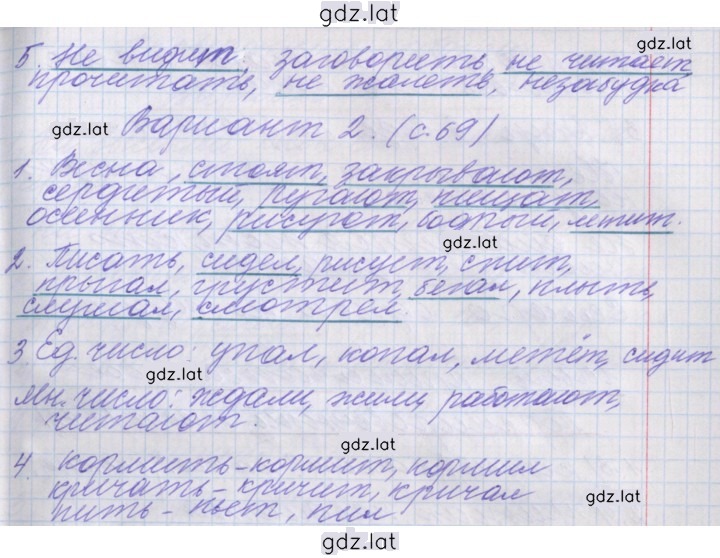 gdz.lat
gdz.lat
5. Не видит, заговорить, не читает,
прочитать, не жалеть, незабудка
gdz.lat
Вариант 2. (с.69)
1. Весна, стоят, закрывают,
сердитый, ругают, пищат,
осенник, рисуют, бодрый, летит.
gdz.lat
2. Писать, сидел, рисует, спит,
прыгал, грустит, бегал, плыть,
слушал, смотрел.
3. Ед. число: упал, копал, метёт, сидит
gdz.lat
Мн. число: ждали, жили, работают,
читают.
gdz.lat
4. кормить – кормит, кормил
кричать – кричит, кричал
gdz.lat
пить – пьёт, пил
gdz.lat